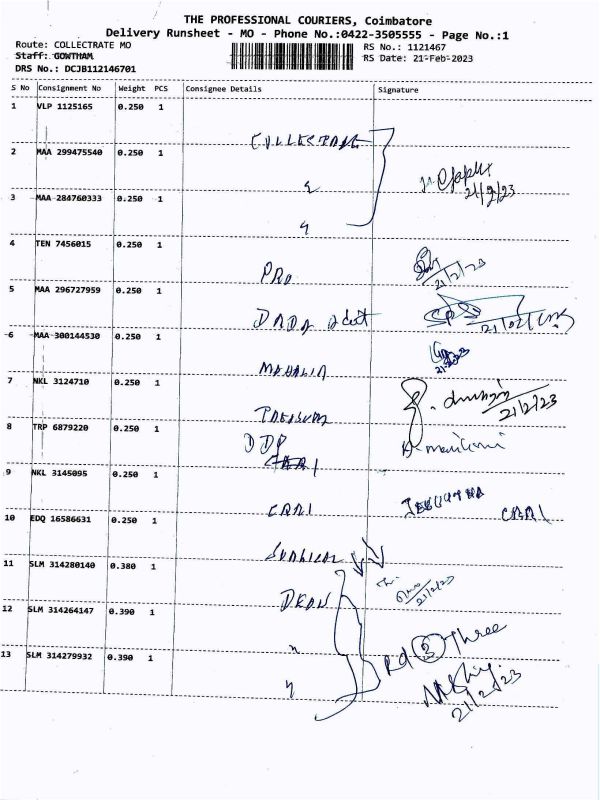 THE PROFESSIONAL COURIERS, Coimbatore
Delivery Runsheet - MO - Phone No.:0422-3505555 - Page No.:1
Route: COLLECTRATE MO
RS No.: 1121467
Staff: GOWTHAM
RS Date: 21-Feb-2023
DRS No.: DCJB112146701
S No Consignment No Weight PCS Consignee Details Signature
1 VLP 1125165 0.250 1
COLLECTRATE
2 MAA 299475540 0.250 1
21/2/23
3 MAA 284760333 0.250 1
4 TEN 7456015 0.250 1
PRO 21/2/23
5 MAA 296727959 0.250 1
6 MAA 300144530 0.250 1
21/2/23
7 NKL 3124710 0.250 1
21/2/23
8 TRP 6879220 0.250 1
DDP
9 NKL 3145095 0.250 1
10 EDQ 16586631 0.250 1
11 SLM 314280140 0.380 1
DEAN 21/2/23
12 SLM 314264147 0.390 1
Rd 3 Three
13 SLM 314279932 0.390 1
21/2/23